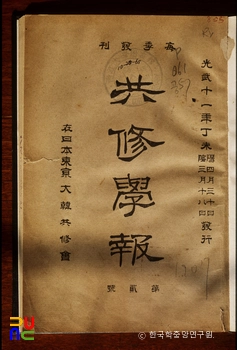 每季發刊
光武十一年丁未
陽四月三十日
陰三月十八日
發行
共修學報
在日本東京 大韓共修會
第貳號
© 한국학중앙연구원